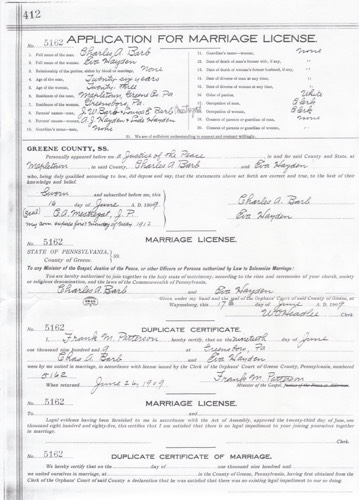 412
APPLICATION FOR MARRIAGE LICENSE.
No. 5162
1. Full name of the man, Charles A. Barb
2. Full name of the woman, Eva Hayden
3. Relationship of the parties, either by blood or marriage, None
4. Age of the man, Twenty six years
5. Age of the woman, Twenty three
6. Residence of the man, Mapletown, Greene Co. Pa
7. Residence of the woman, Greensboro, Pa.
8. Parents' names—man, J. W. Barb
9. Parents' names—woman, A. J. Hayden
10. Guardian's name—man, None
11. Guardian's name—woman, None
12. Date of death of man's former wife, if any, "
13. Date of death of woman's former husband, if any, "
14. Date of divorce of man at any time, "
15. Date of divorce of woman at any time, "
16. Color of parties, White
17. Occupation of man, Clerk
18. Occupation of woman, Clerk
19. Consent of parents or guardian—man, None
20. Consent of parents or guardian—woman, "
GREENE COUNTY, SS.
Personally appeared before me a Justice of the Peace in and for said County and State, at
Mapletown in said County, Charles A. Barb and Eva Hayden
who, being duly qualified according to law, did depose and say, that the statements above set forth are correct and true, to the best of their
knowledge and belief.
Sworn and subscribed before me, this
16 day of June A. D. 1909
(seal) J. P.
Charles A. Barb
Eva Hayden
My com expires first Monday of May 1912
No. 5162
MARRIAGE LICENSE.
STATE OF PENNSYLVANIA, SS.
County of Greene.
To any Minister of the Gospel, Justice of the Peace, or other Officers or Persons authorized by Law to Solemnize Marriage:
You are hereby authorized to join together in the holy state of matrimony, according to the rites and ceremonies of your church, society
or religious denomination, and the laws of the Commonwealth of Pennsylvania,
Charles A. Barb and Eva Hayden
Given under my hand and the seal of the Orphans' Court of said County of Greene, at
Waynesburg, this 17th day of June A. D. 1909
Clerk.
No. 5162
DUPLICATE CERTIFICATE.
I, Frank M. Patterson hereby certify, that on the nineteenth day of June
one thousand nine hundred and 9 at Greensboro, Pa
Chas A. Barb and Eva Hayden
were by me united in marriage, in accordance with license issued by the Clerk of the Orphans' Court of Greene County, Pennsylvania, numbered
5162
Frank M. Patterson
When returned June 26, 1909
Minister of the Gospel, Justice of the Peace or Alderman.
No. 5162
MARRIAGE LICENSE.
To and
Legal evidence having been furnished to me in accordance with the Act of Assembly, approved the twenty-third day of June, one
thousand eight hundred and eighty-five, this certifies that I am satisfied that there is no legal impediment to your joining yourselves together
in marriage.
Clerk.
No. 5162
DUPLICATE CERTIFICATE OF MARRIAGE.
We hereby certify that on the day of one thousand nine hundred and
we united ourselves in marriage, at in the County of Greene, Pennsylvania, having first obtained from the
Clerk of the Orphans' Court of said County a declaration that he was satisfied that there was no existing legal impediment to our so doing.